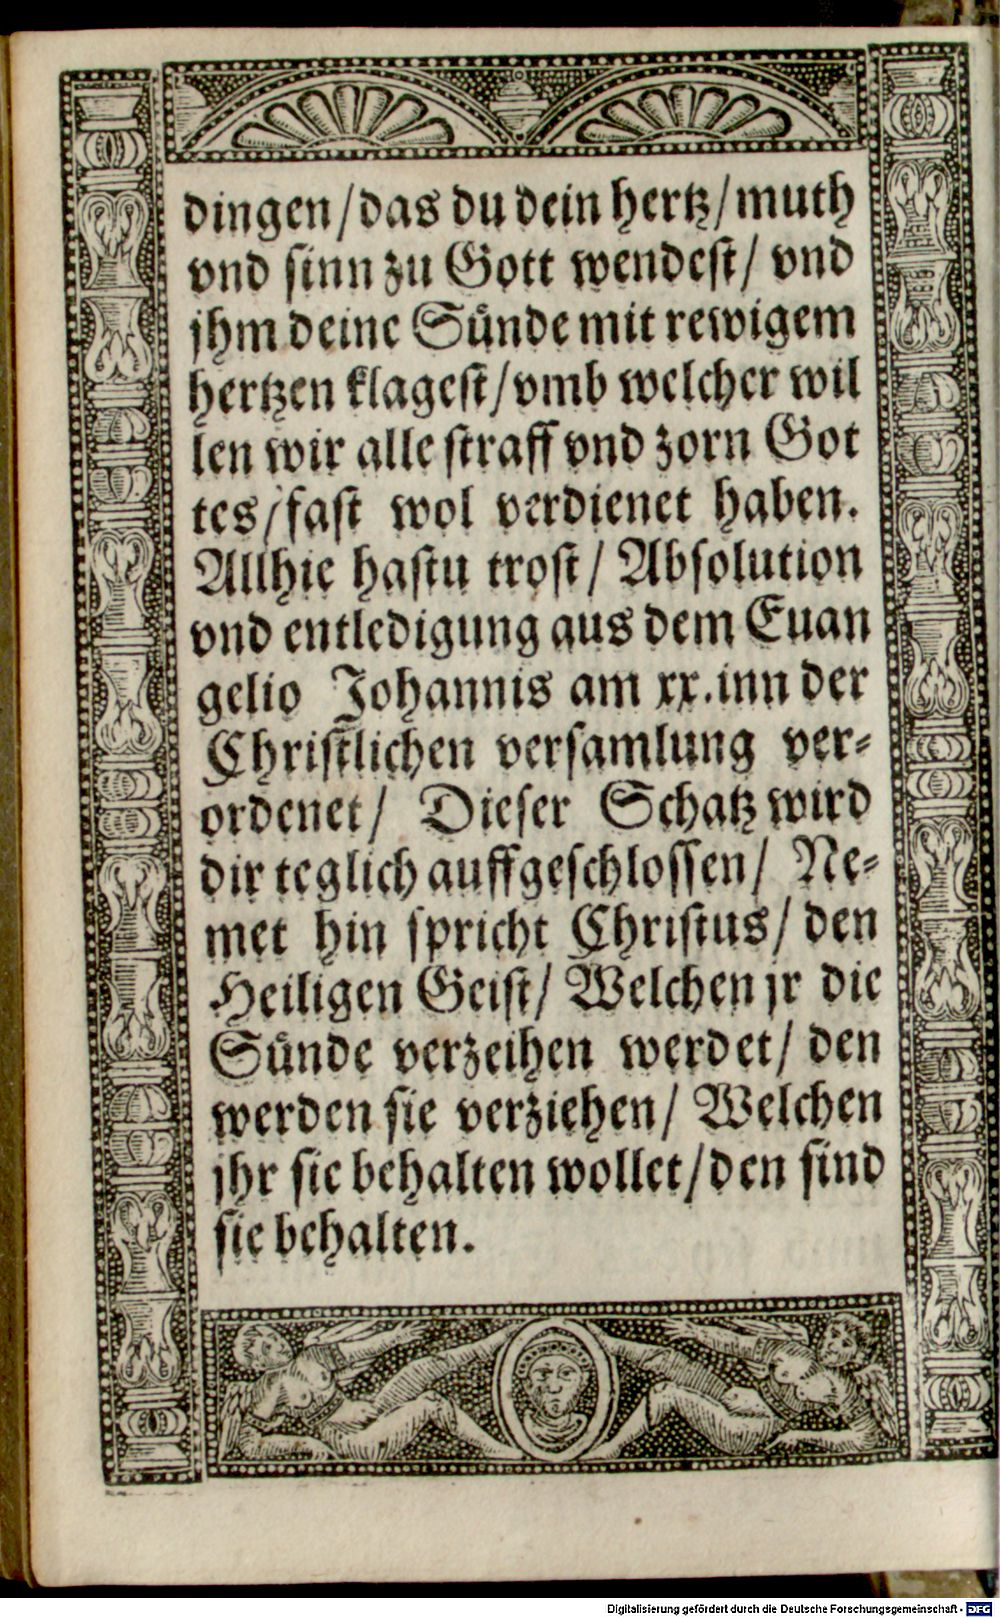 dingen/das du dein hertz/muth
vnd sinn zu Gott wendest/ vnd
jhm deine Sünde mit rewigem
hertzen klagest/vmb welcher wil
len wir alle straff vnd zorn Got
tes/fast wol verdienet haben.
Allhie hastu trost/ Absolution
vnd entledigung aus dem Euan
gelio Johannis am xx.inn der
Christlichen versamlung ver⸗
ordenet/ Dieser Schatz wird
dir teglich auffgeschlossen/ Ne⸗
met hin spricht Christus/ den
Heiligen Geist/ Welchen jr die
Sünde verzeihen werdet/ den
werden sie verziehen/ Welchen
jhr sie behalten wollet/den sind
sie behalten.
Digitalisierung gefördert durch die Deutsche Forschungsgemeinschaft - DFG